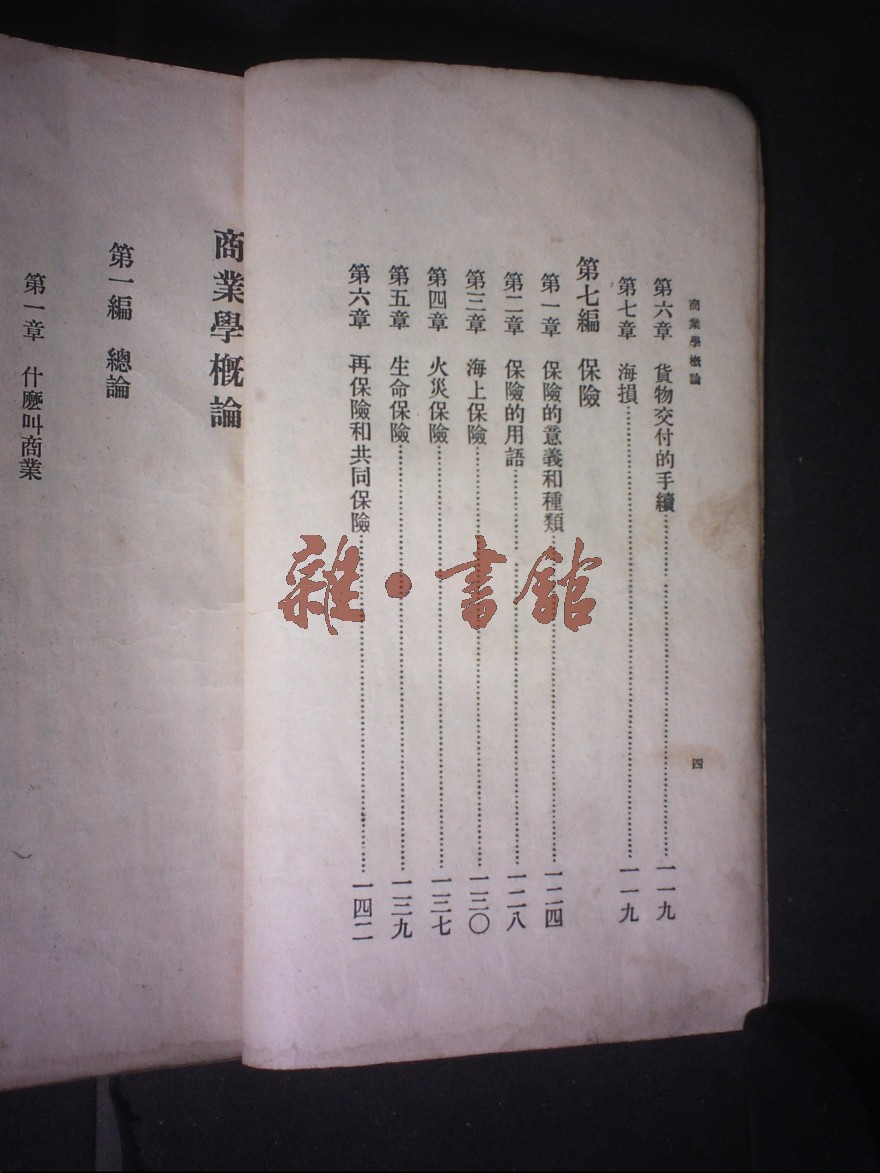 商業學概論
四
第六章　貨物交付的手續……一一九
第七章　海損……一一九
第七編　保險
第一章　保險的意義和種類……一二四
第二章　保險的用語……一二八
第三章　海上保險……一三〇
第四章　火災保險……一三七
第五章　生命保險……一三九
第六章　再保險和共同保險……一四二
雜·書館
商業學概論
第一編　總論
第一章　什麽叫商業